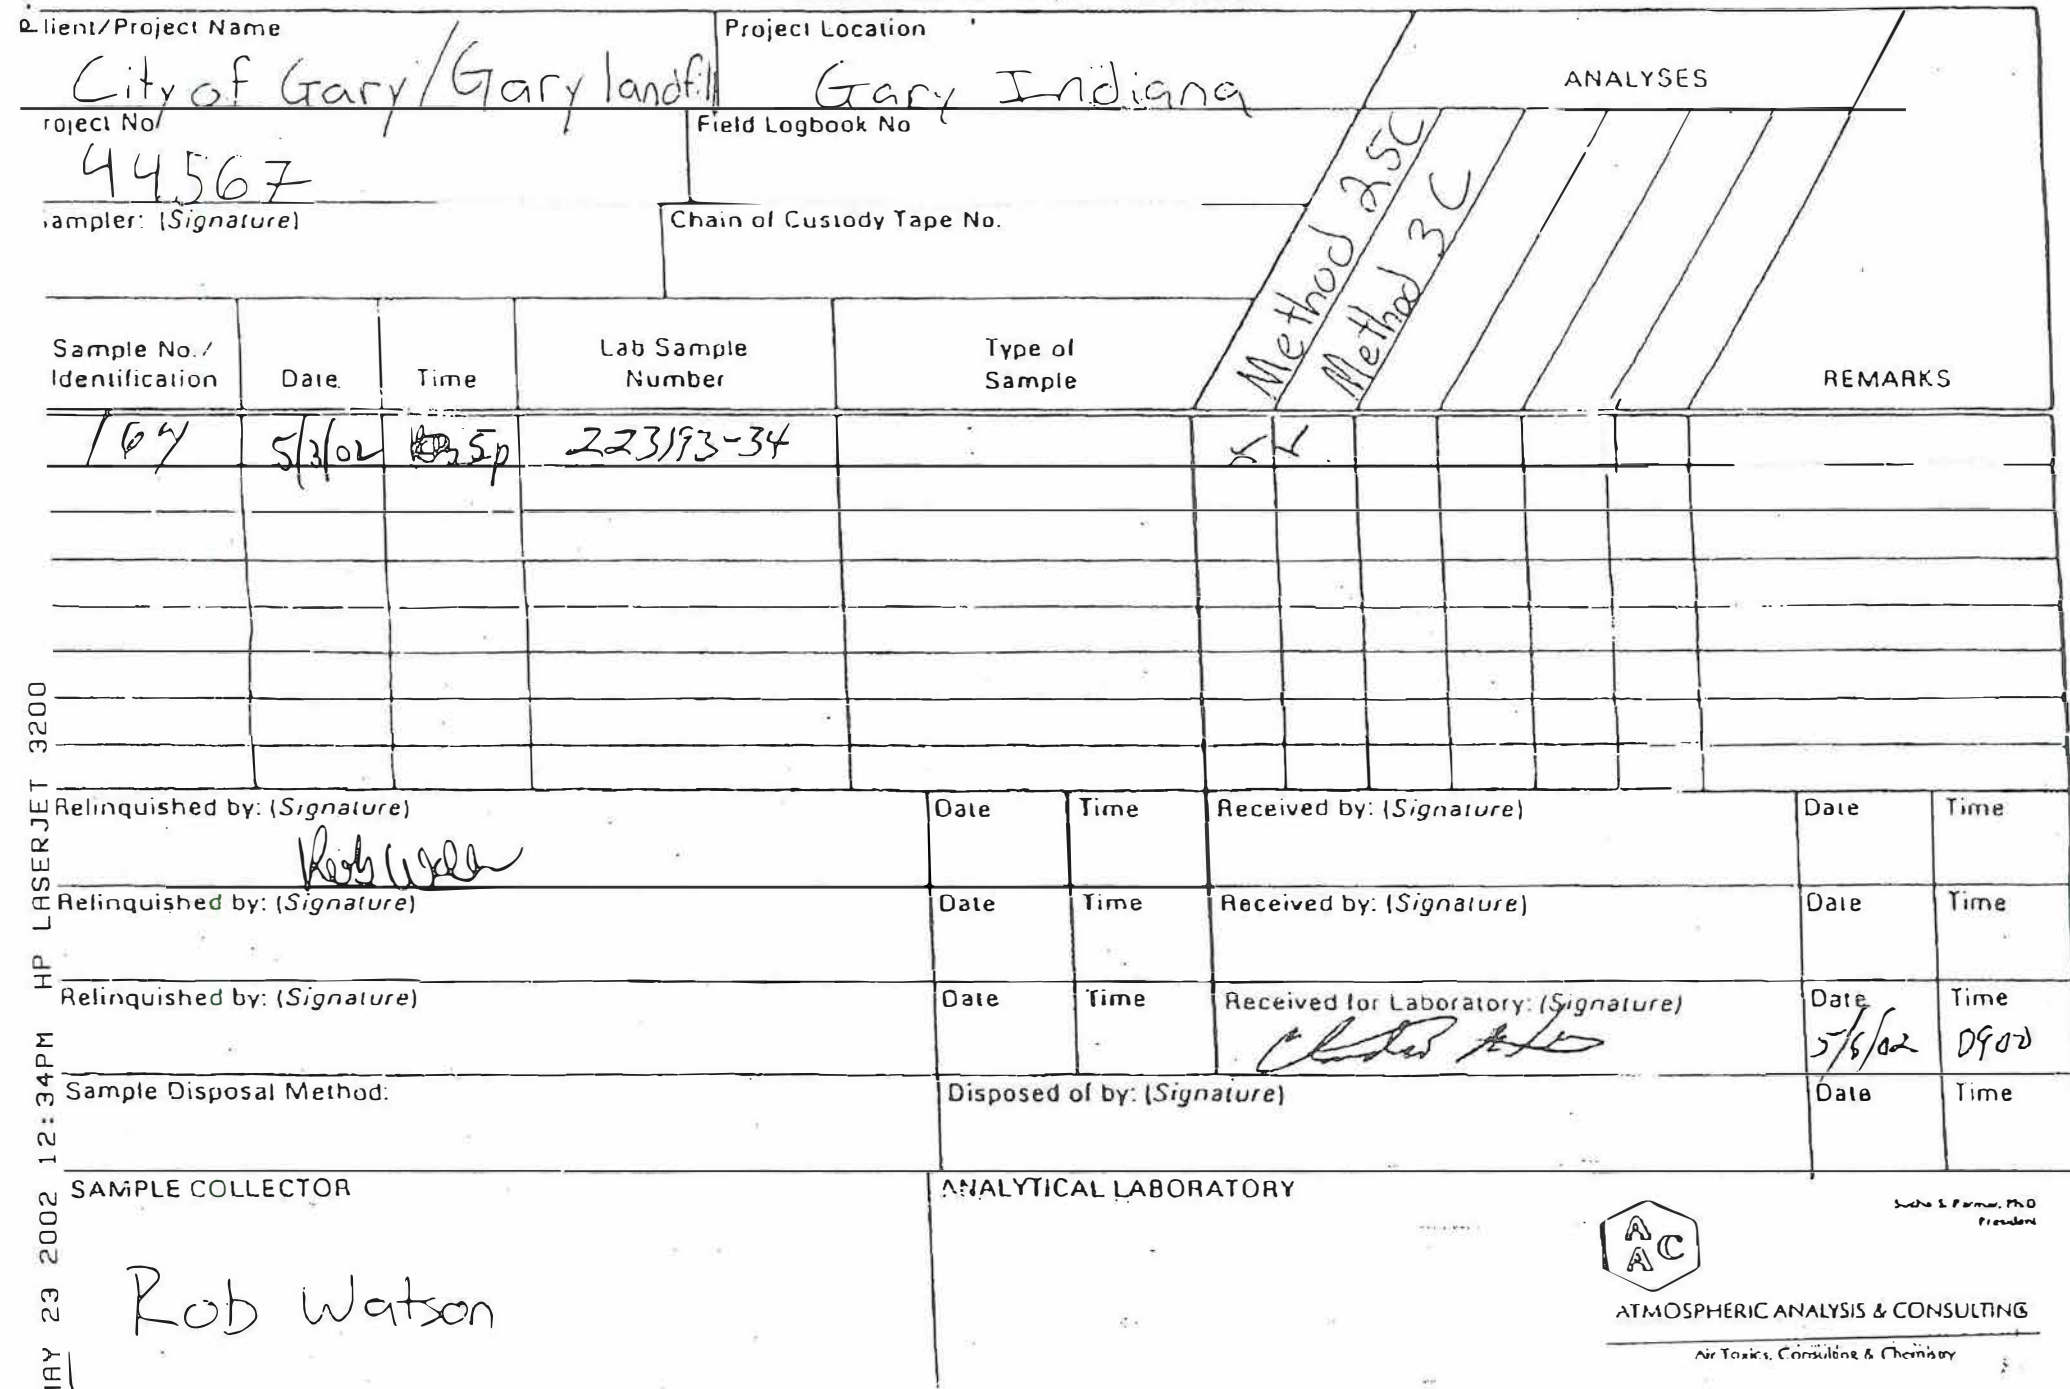 Client/Project Name
City of Gary/Gary landfill
Project Location
Gary Indiana
ANALYSES
roject No
44567
Field Logbook No
ampler: (Signature)
Chain of Custody Tape No.
Method 25C
Method 3C
Sample No./
Identification
Date
Time
Lab Sample
Number
Type of
Sample
REMARKS
5/3/02 5p 223193-34
Relinquished by: (Signature)
Date
Time
Received by: (Signature)
Date
Time
Relinquished by: (Signature)
Date
Time
Received by: (Signature)
Date
Time
Relinquished by: (Signature)
Date
Time
Received for Laboratory: (Signature)
Date
Time
0900
Sample Disposal Method:
Disposed of by: (Signature)
Date
Time
SAMPLE COLLECTOR
Rob Watson
ANALYTICAL LABORATORY
AAC
Ph.D
President
ATMOSPHERIC ANALYSIS & CONSULTING
Air Toxics, Consulting & Chemistry
MAY 23 2002 12:34PM HP LASERJET 3200